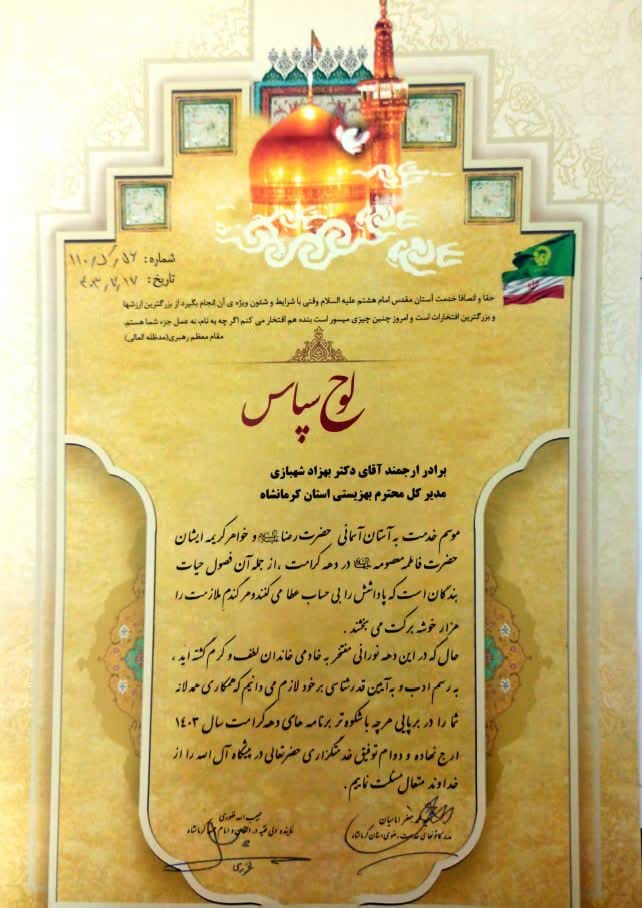 شماره: ۱۱۰/ک/۵۶
تاریخ: ۴۰۳/۲/۱۷
حقا و انصافا خدمت آستان مقدس امام هشتم علیه السلام وقتی با شرایط و شئون ویژه ی آن انجام بگیرد از بزرگترین ارزشها
و بزرگترین افتخارات است و امروز چنین چیزی میسور است بنده هم افتخار می کنم اگر چه به نام، نه عمل جزء شما هستم.
مقام معظم رهبری(مدظله العالی)
لوح سپاس
برادر ارجمند آقای دکتر بهزاد شهبازی
مدیر کل محترم بهزیستی استان کرمانشاه
موسم خدمت به آستان آسمانی حضرت رضا و خواهر کریمه ایشان
حضرت فاطمه معصومه در دهه کرامت ، از جمله آن فصول حیات
بندگان است که پاداشش را بی حساب عطا می کنند و هر گندم ملازمت را
هزار خوشه برکت می بخشند .
حال که در این دهه نورانی مفتخر به خادمی خاندان لطف و کرم گشته اید ،
به رسم ادب و به آیین قدرشناسی بر خود لازم می دانیم که همکاری همدلانه
شما را در برپایی هرچه باشکوه تر برنامه های دهه کرامت سال ۱۴۰۳
ارج نهاده و دوام توفیق خدمتگزاری حضرتعالی در پیشگاه آل الله را از
خداوند متعال مسئلت نماییم .
جعفر امامیان
مدیر کانونهای خدمت رضوی استان کرمانشاه
حبیب اله غفوری
نماینده ولی فقیه در استان و امام جمعه کرمانشاه